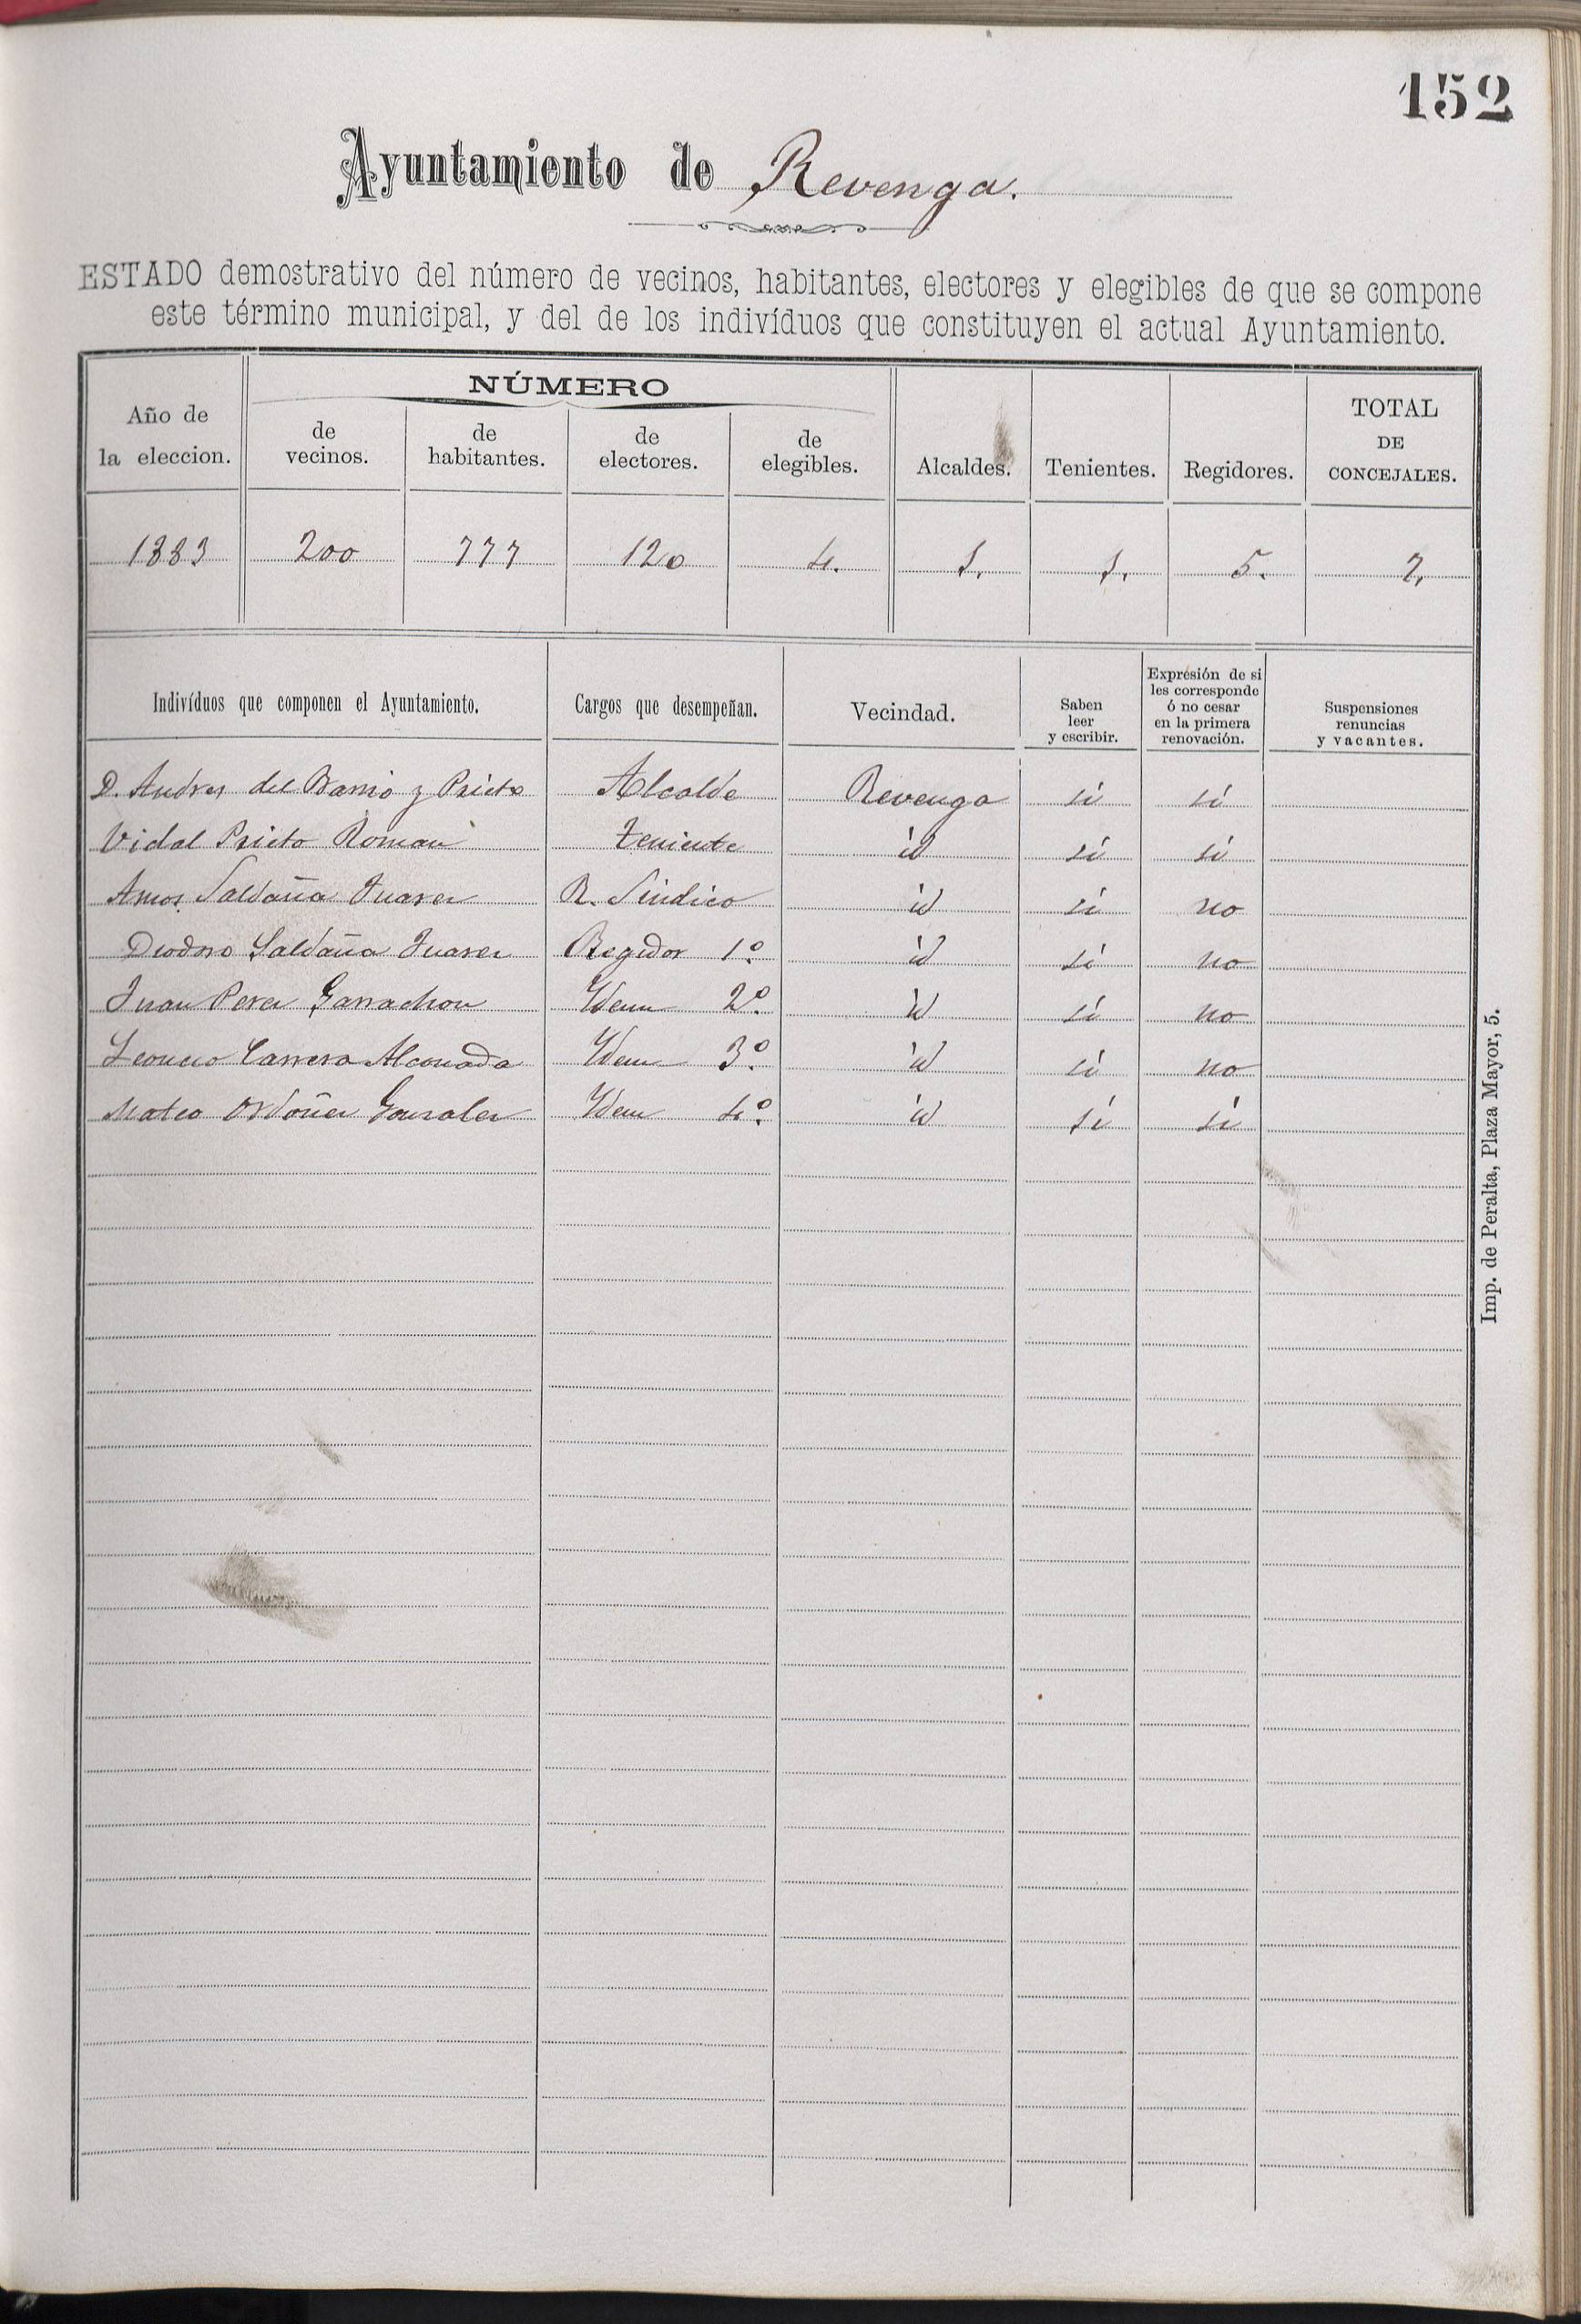 152
Ayuntamiento de Revenga.
ESTADO demostrativo del número de vecinos, habitantes, electores y elegibles de que se compone
este término municipal, y del de los indivíduos que constituyen el actual Ayuntamiento.
Año de la eleccion. NÚMERO de vecinos. de habitantes. de electores. de elegibles. Alcaldes. Tenientes. Regidores. TOTAL DE CONCEJALES.
1883 200 777 120 4. 1. 1. 5. 7.
Indivíduos que componen el Ayuntamiento. Cargos que desempeñan. Vecindad. Saben leer y escribir. Expresión de si les corresponde ó no cesar en la primera renovación. Suspensiones renuncias y vacantes.
D. Andres del Barrio y Prieto Alcalde Revenga si si
Vidal Prieto Roman Teniente id si si
Amos Saldaña Juarez R. Sindico id si no
Diodoro Saldaña Juarez Regidor 1º. id si no
Juan Perez Garrachon Ydem 2º. id si no
Leoncio Carrera Alconada Ydem 3º. id si no
Mateo Ordoñez Gonzalez Ydem 4º. id si si
Imp. de Peralta, Plaza Mayor, 5.